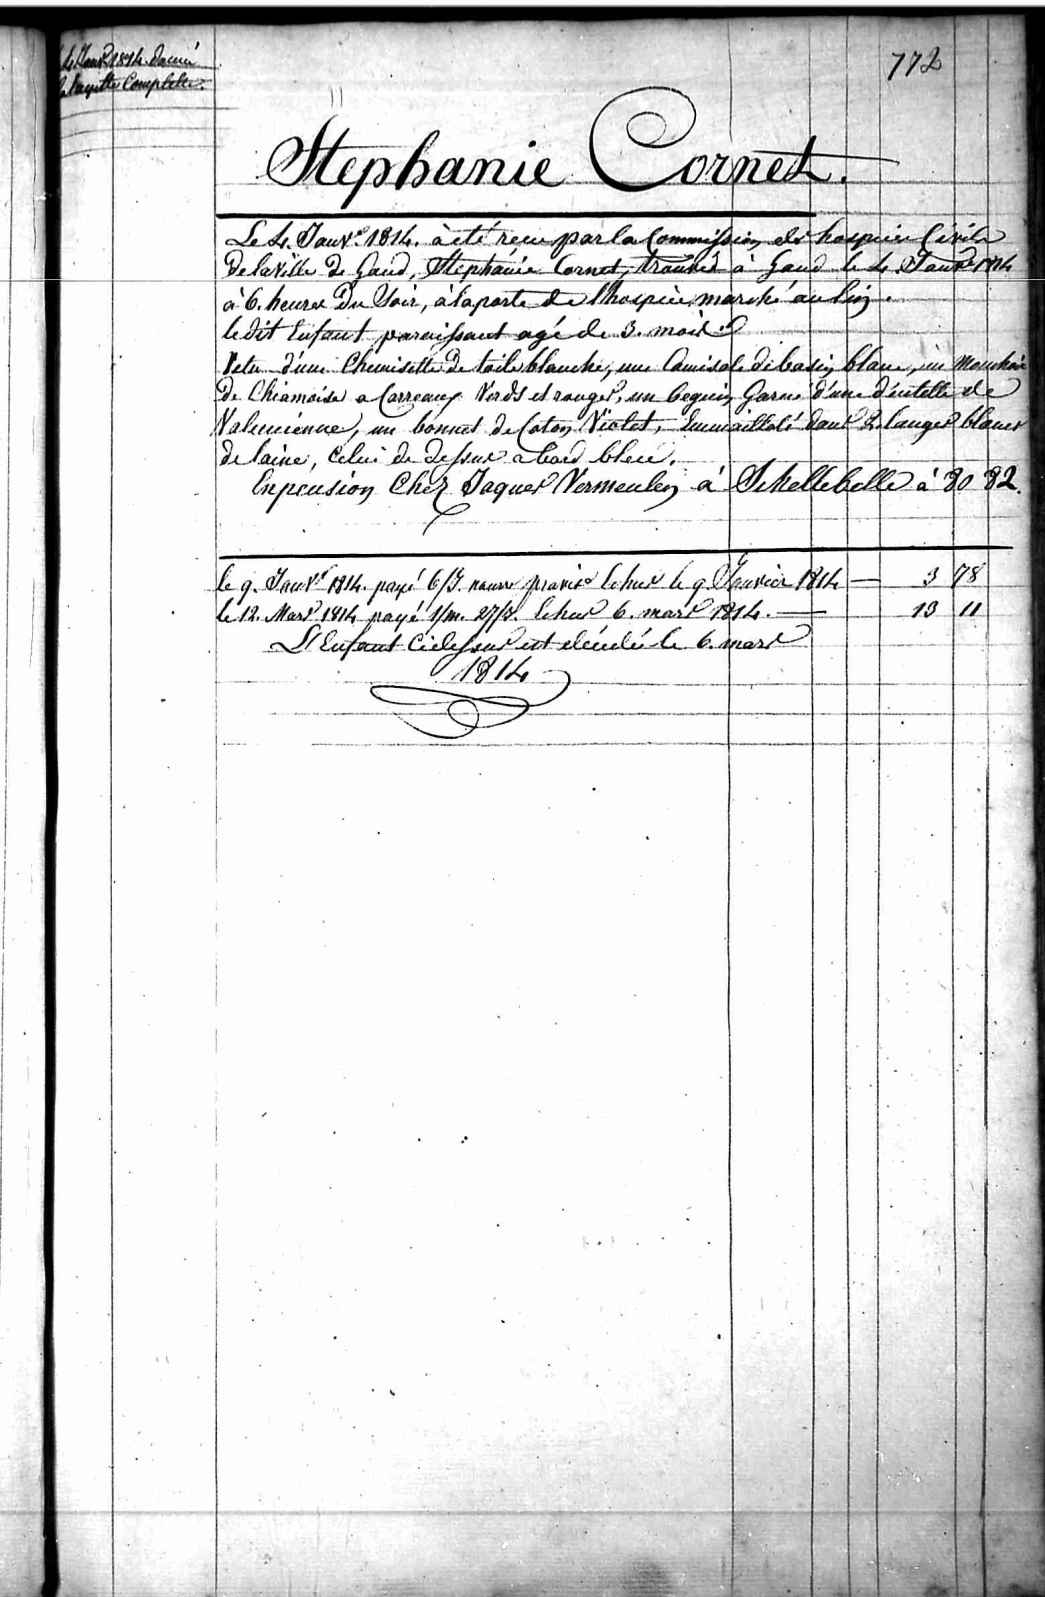 4 Janvr 1814 Donné
la layette Complette.
772
Stephanie Cornet.
Le 4. Janvr 1814. à été reçu par la Commission des hospices Civils
De la Ville de Gand, Stephanie Cornet, trouvée à Gand le 4 Janvr 1814
à 6. heures Du Soir, à la porte de l'hospice, marché au lin.
le dit Enfant paraissant agé de 3. mois.
Vetu d'une Chemisette de toile blanche, une Camisole de basin blanc, un Mouchoir
de Chiamoise a Carreaux Verds et rouges, un beguin Garni d'une d'entelle de
Valencienne, un bonnet de Coton Violet, Emmailloté dans 2. langes blancs
de laine, Celui de dessus a bord bleu.
En pension Chez Jaques Vermeulen à Schellebelle à 80 82.
le 9. Janvr 1814. payé 6/J. nourr provis Echus le 9 Janvier 1814 — 3 78
le 12. Mars 1814 payé 1/m. 27/J. Echus 6. mars 1814. — 13 11
L'Enfant Cidessus est décédé le 6. mars
1814